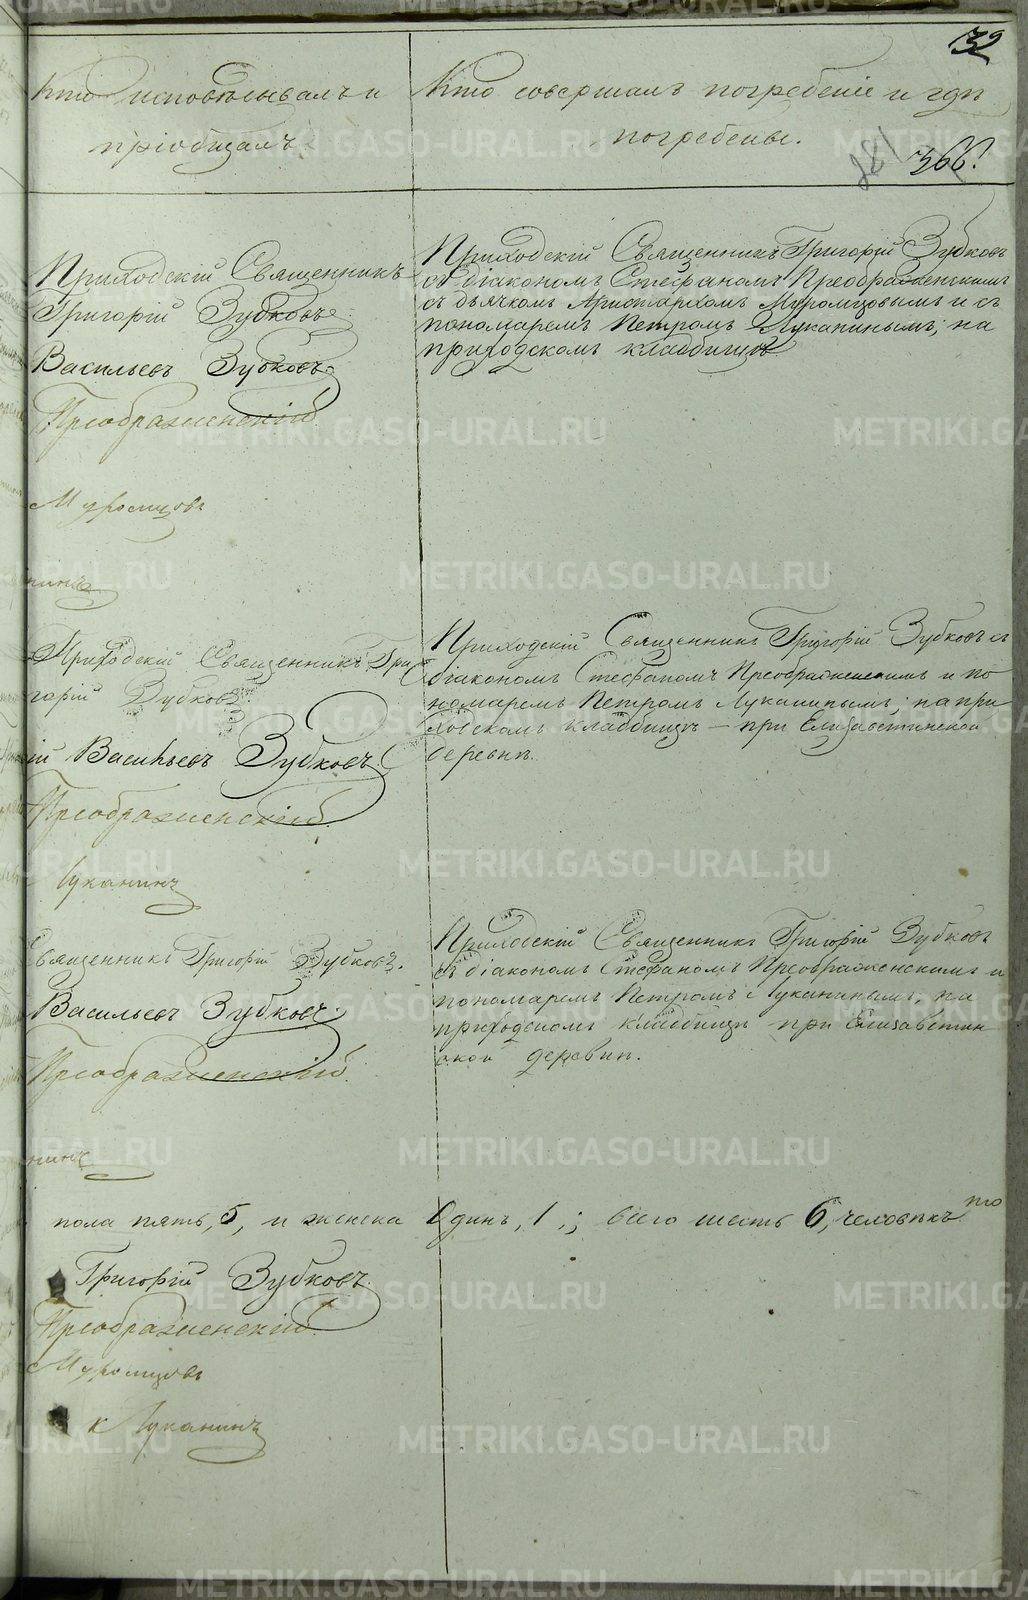 32
Кто исповѣдывалъ и
пріобщалъ.
Кто совершалъ погребеніе и гдѣ
погребены.
366.
Приходскій Священникъ
Григорій Зубковъ.
Васильевъ Зубковъ.
Преображенскій
Муромцовъ
нинъ
Приходскій Священникъ Григорій Зубковъ
съ діакономъ Стефаномъ Преображенскимъ
съ дьячкомъ Аристархомъ Муромцовымъ и съ
пономаремъ Петромъ Луканинымъ; на
приходскомъ кладбищѣ
Приходскій Священникъ Гри
горій Зубковъ.
ій Васильевъ Зубковъ.
Преображенскій
Луканинъ
Приходскій Священникъ Григорій Зубковъ съ
діакономъ Стефаномъ Преображенскимъ и по
номаремъ Петромъ Луканинымъ; на при
ходскомъ кладбищѣ — при Елизаветинской
деревнѣ.
Священникъ Григорій Зубковъ.
Васильевъ Зубковъ.
Преображенскій
нинъ
Приходскій Священникъ Григорій Зубковъ
съ діакономъ Стефаномъ Преображенскимъ и
пономаремъ Петромъ Луканинымъ; на
приходскомъ кладбищѣ при Елизаветин
ской деревнѣ.
пола пять, 5, и женска одинъ, 1,; всего шесть 6, человѣкъ
Григорій Зубковъ.
Преображенскій
Муромцовъ
къ Луканинъ
METRIKI.GASO-URAL.RU